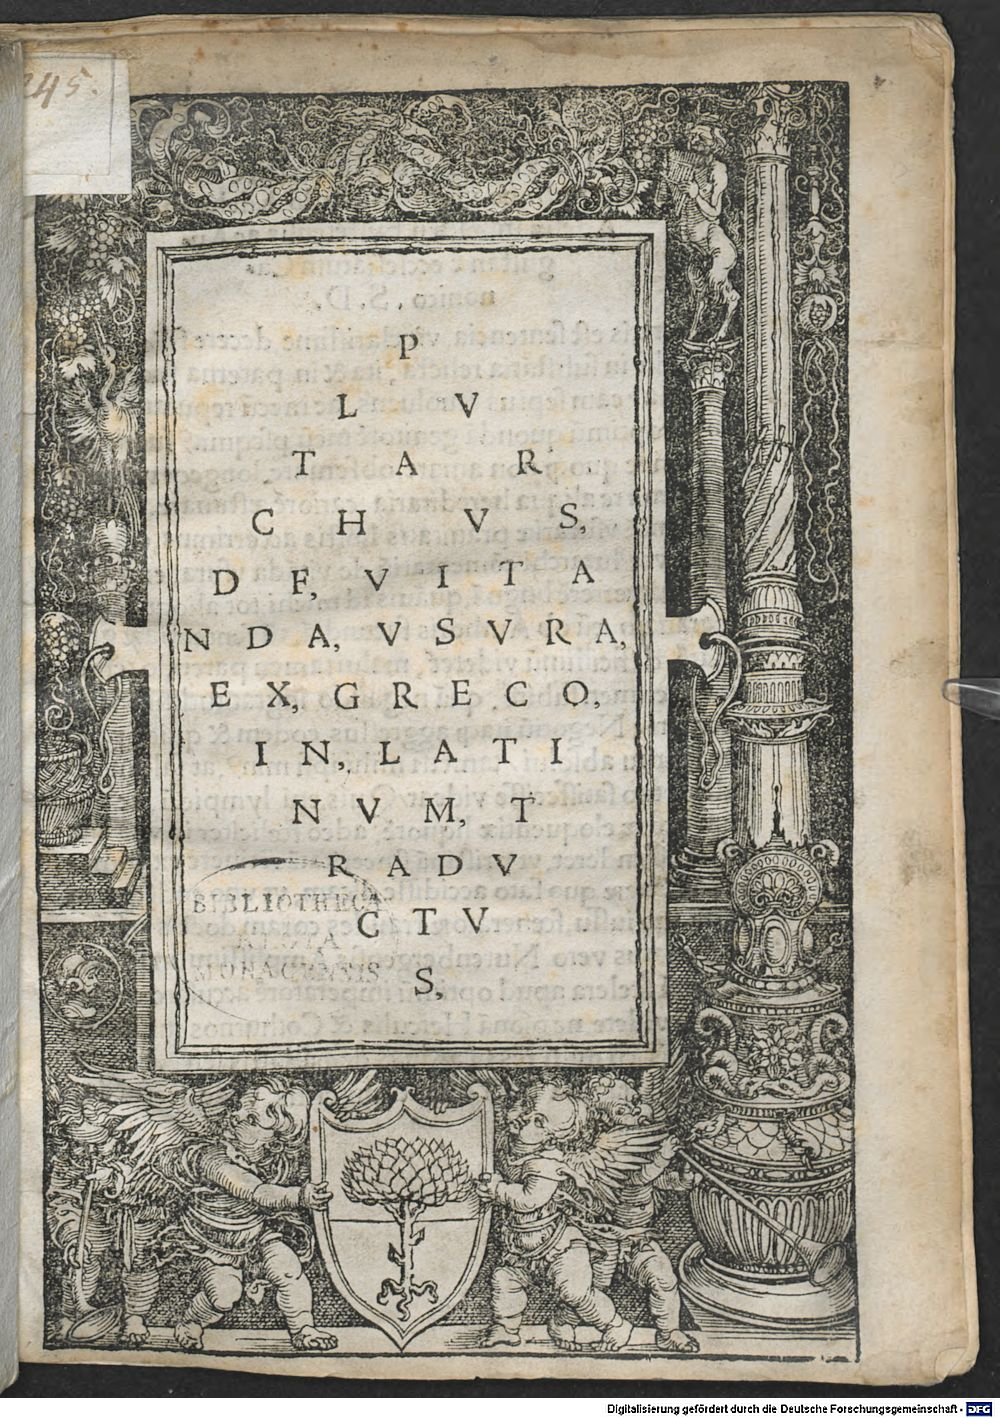 245.
P
L V
T A R
C H V S,
D E, V I T A
N D A, V S V R A,
E X, G R E C O,
I N, L A T I
N V M, T
R A D V
C T V
S,
BIBLIOTHECA
REGIA
MONACENSIS
Digitalisierung gefördert durch die Deutsche Forschungsgemeinschaft - DFG